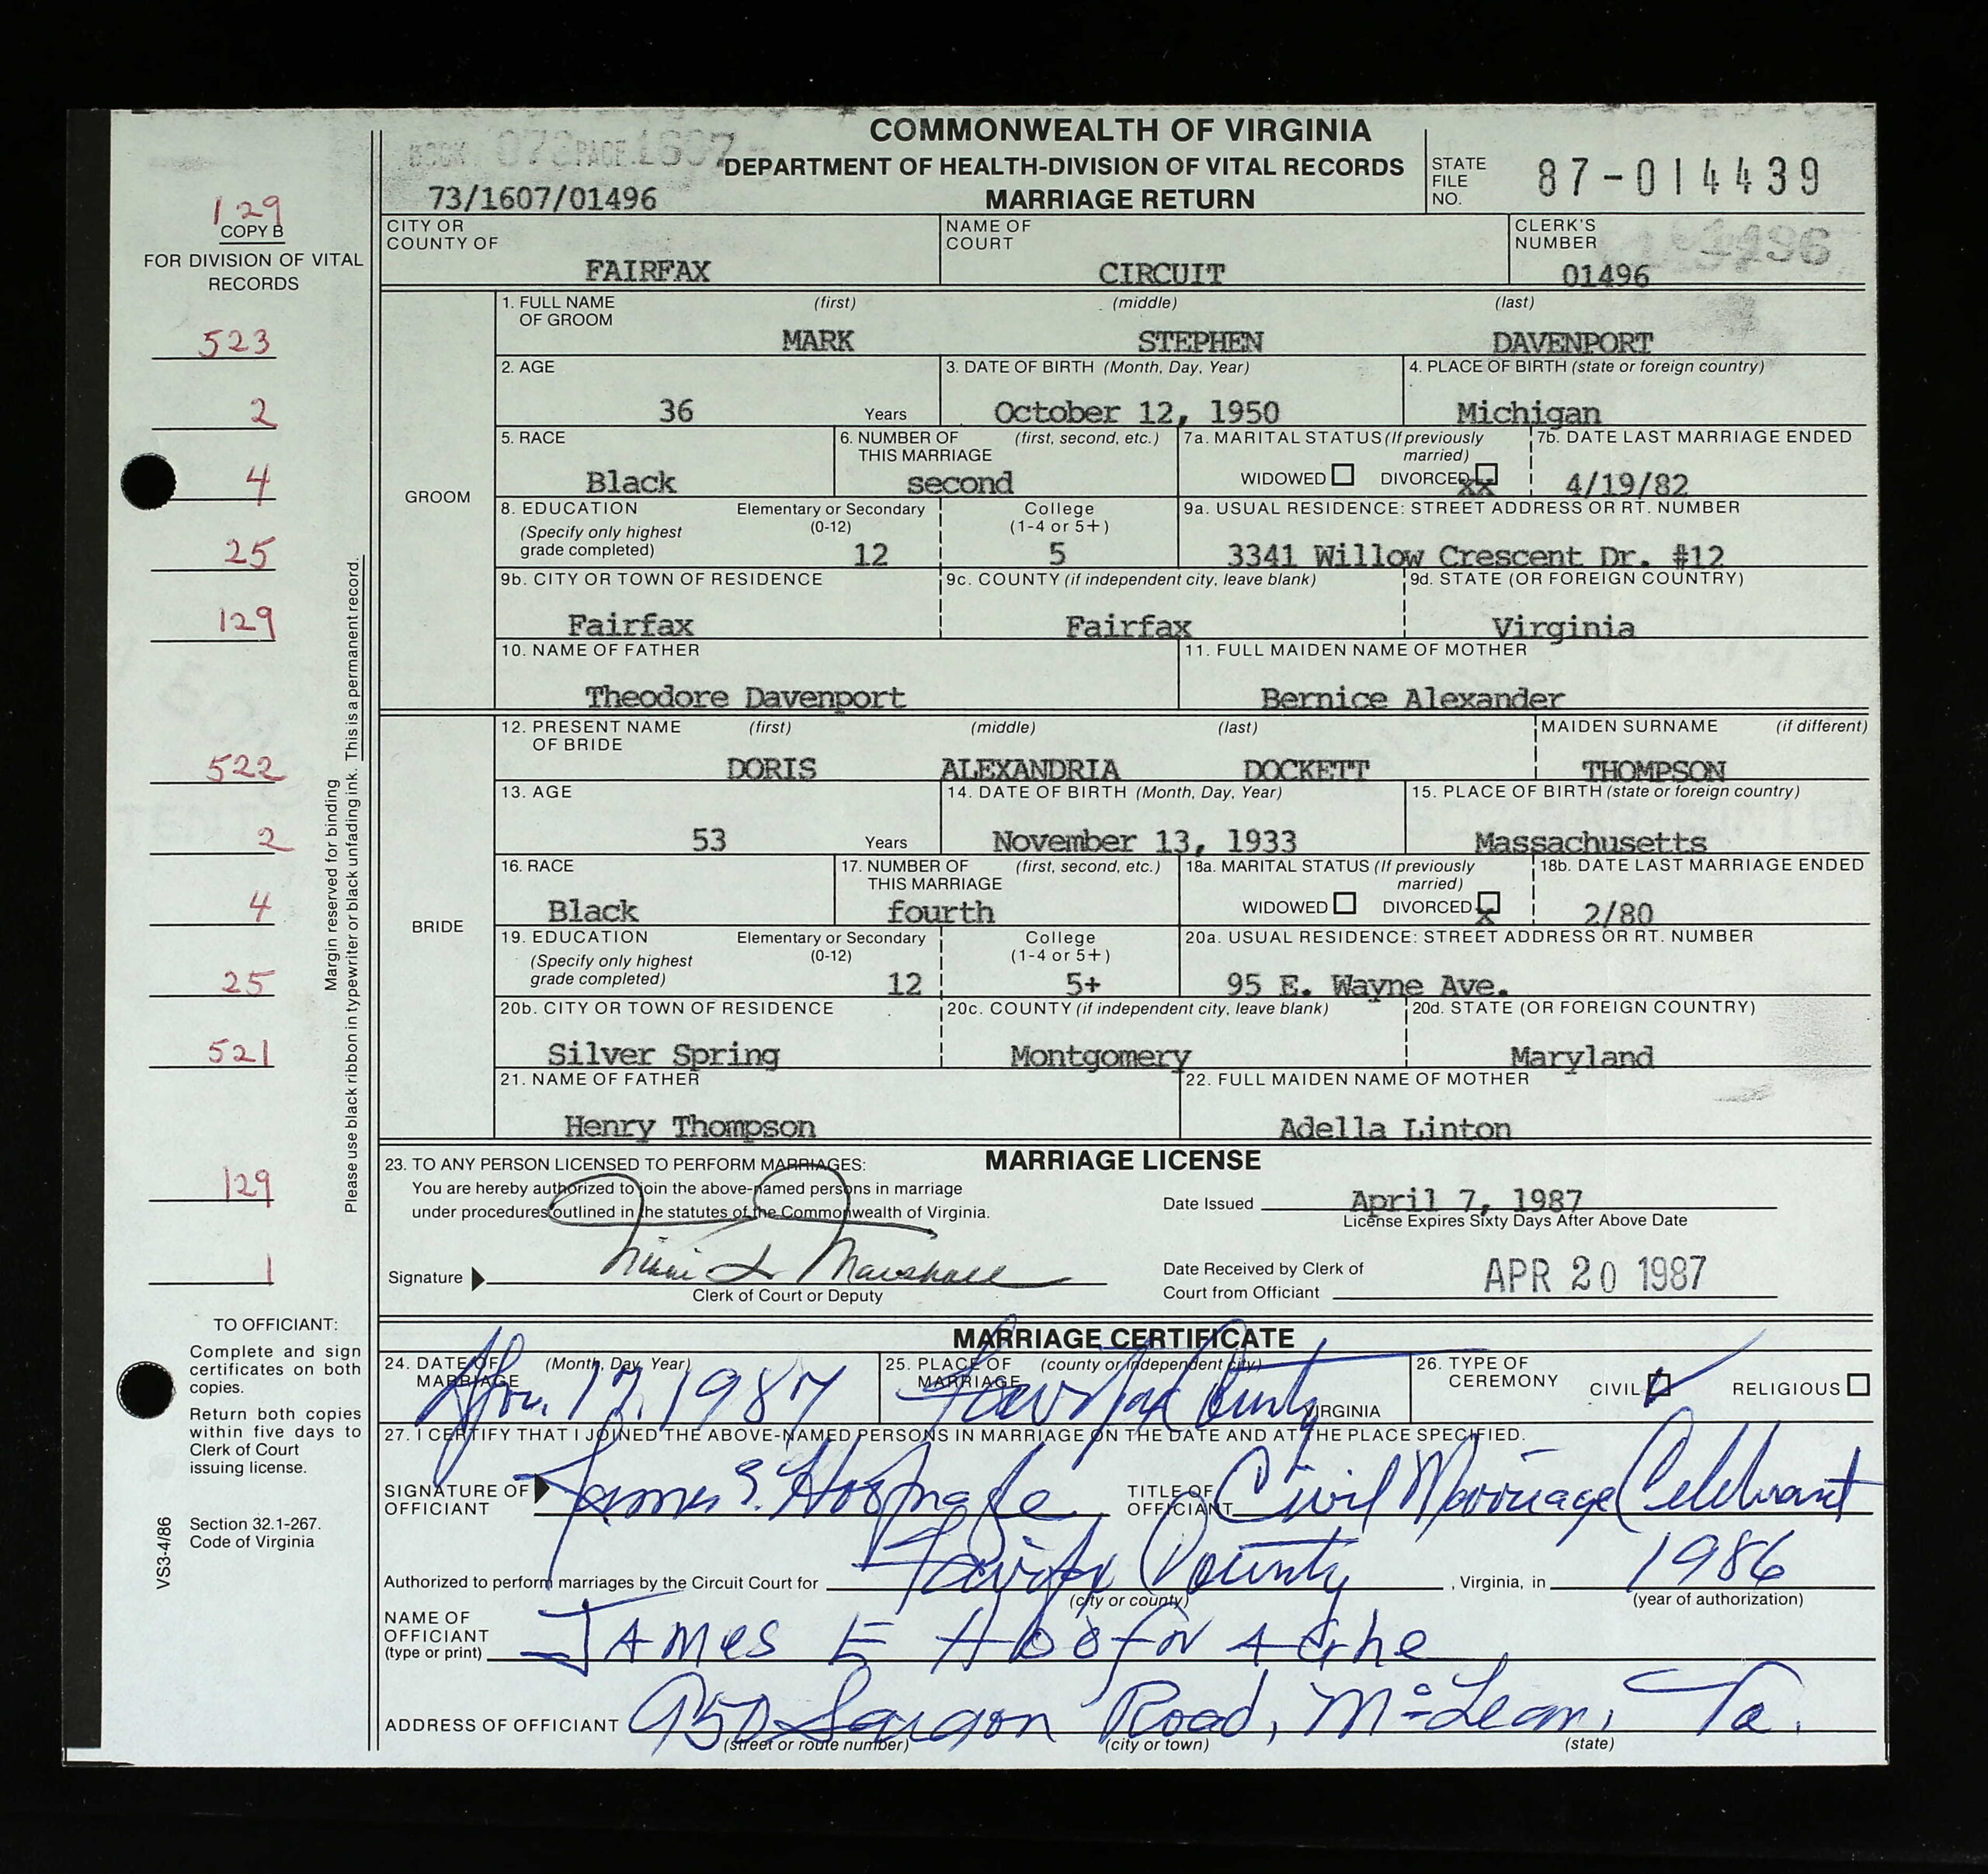 COMMONWEALTH OF VIRGINIA
BOOK 073 PAGE 1607
DEPARTMENT OF HEALTH-DIVISION OF VITAL RECORDS
73/1607/01496
MARRIAGE RETURN
STATE FILE NO. 87-014439
129
COPY B
FOR DIVISION OF VITAL RECORDS
CITY OR COUNTY OF FAIRFAX
NAME OF COURT CIRCUIT
CLERK'S NUMBER 01496
GROOM
1. FULL NAME OF GROOM (first) (middle) (last)
MARK STEPHEN DAVENPORT
523
2. AGE 36 Years
3. DATE OF BIRTH (Month, Day, Year) October 12, 1950
4. PLACE OF BIRTH (state or foreign country) Michigan
2
5. RACE Black
6. NUMBER OF THIS MARRIAGE (first, second, etc.) second
7a. MARITAL STATUS (If previously married) WIDOWED DIVORCED xx
7b. DATE LAST MARRIAGE ENDED 4/19/82
4
8. EDUCATION (Specify only highest grade completed)
Elementary or Secondary (0-12) 12
College (1-4 or 5+) 5
9a. USUAL RESIDENCE: STREET ADDRESS OR RT. NUMBER
3341 Willow Crescent Dr. #12
25
9b. CITY OR TOWN OF RESIDENCE Fairfax
9c. COUNTY (if independent city, leave blank) Fairfax
9d. STATE (OR FOREIGN COUNTRY) Virginia
129
10. NAME OF FATHER Theodore Davenport
11. FULL MAIDEN NAME OF MOTHER Bernice Alexander
BRIDE
12. PRESENT NAME OF BRIDE (first) (middle) (last) MAIDEN SURNAME (if different)
DORIS ALEXANDRIA DOCKETT THOMPSON
522
13. AGE 53 Years
14. DATE OF BIRTH (Month, Day, Year) November 13, 1933
15. PLACE OF BIRTH (state or foreign country) Massachusetts
2
16. RACE Black
17. NUMBER OF THIS MARRIAGE (first, second, etc.) fourth
18a. MARITAL STATUS (If previously married) WIDOWED DIVORCED x
18b. DATE LAST MARRIAGE ENDED 2/80
4
19. EDUCATION (Specify only highest grade completed)
Elementary or Secondary (0-12) 12
College (1-4 or 5+) 5+
20a. USUAL RESIDENCE: STREET ADDRESS OR RT. NUMBER
95 E. Wayne Ave.
25
20b. CITY OR TOWN OF RESIDENCE Silver Spring
20c. COUNTY (if independent city, leave blank) Montgomery
20d. STATE (OR FOREIGN COUNTRY) Maryland
521
21. NAME OF FATHER Henry Thompson
22. FULL MAIDEN NAME OF MOTHER Adella Linton
Margin reserved for binding
Please use black ribbon in typewriter or black unfading ink. This is a permanent record.
MARRIAGE LICENSE
23. TO ANY PERSON LICENSED TO PERFORM MARRIAGES:
You are hereby authorized to join the above-named persons in marriage
under procedures outlined in the statutes of the Commonwealth of Virginia.
129
Date Issued April 7, 1987
License Expires Sixty Days After Above Date
1
Signature Marshall
Clerk of Court or Deputy
Date Received by Clerk of Court from Officiant APR 20 1987
TO OFFICIANT:
Complete and sign
certificates on both
copies.
Return both copies
within five days to
Clerk of Court
issuing license.
Section 32.1-267.
Code of Virginia
VS3-4/86
MARRIAGE CERTIFICATE
24. DATE OF MARRIAGE (Month, Day, Year) Apr. 17, 1987
25. PLACE OF MARRIAGE (county or independent city) Fairfax County VIRGINIA
26. TYPE OF CEREMONY CIVIL RELIGIOUS
27. I CERTIFY THAT I JOINED THE ABOVE-NAMED PERSONS IN MARRIAGE ON THE DATE AND AT THE PLACE SPECIFIED.
SIGNATURE OF OFFICIANT James E. Hoofnagle
TITLE OF OFFICIANT Civil Marriage Celebrant
Authorized to perform marriages by the Circuit Court for Fairfax County, Virginia, in 1986
(city or county) (year of authorization)
NAME OF OFFICIANT (type or print) JAMES E
ADDRESS OF OFFICIANT 950 Road, McLean, Va.
(street or route number) (city or town) (state)